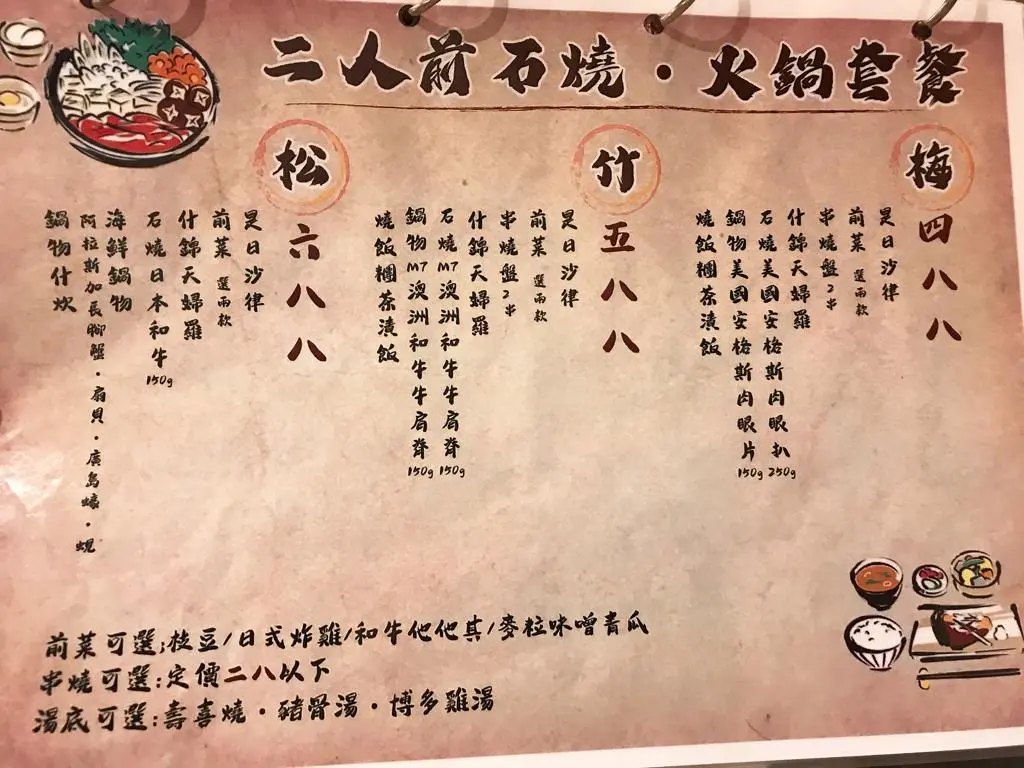 二人前石燒·火鍋套餐
梅
四八八
是日沙律
前菜 選兩款
串燒盤2串
什錦天婦羅
石燒美國安格斯肉眼扒250g
鍋物美國安格斯肉眼片150g
燒飯糰茶漬飯
竹
五八八
是日沙律
前菜 選兩款
串燒盤2串
什錦天婦羅
石燒M7澳洲和牛牛肩脊150g
鍋物M7澳洲和牛牛肩脊150g
燒飯糰茶漬飯
松
六八八
是日沙律
前菜 選兩款
什錦天婦羅
石燒日本和牛150g
海鮮鍋物
阿拉斯加長腳蟹·扇貝·廣島蠔·蜆
鍋物什炊
前菜可選:枝豆/日式炸雞/和牛他他其/麥粒味噌青瓜
串燒可選:定價二八以下
湯底可選:壽喜燒·豬骨湯·博多雞湯